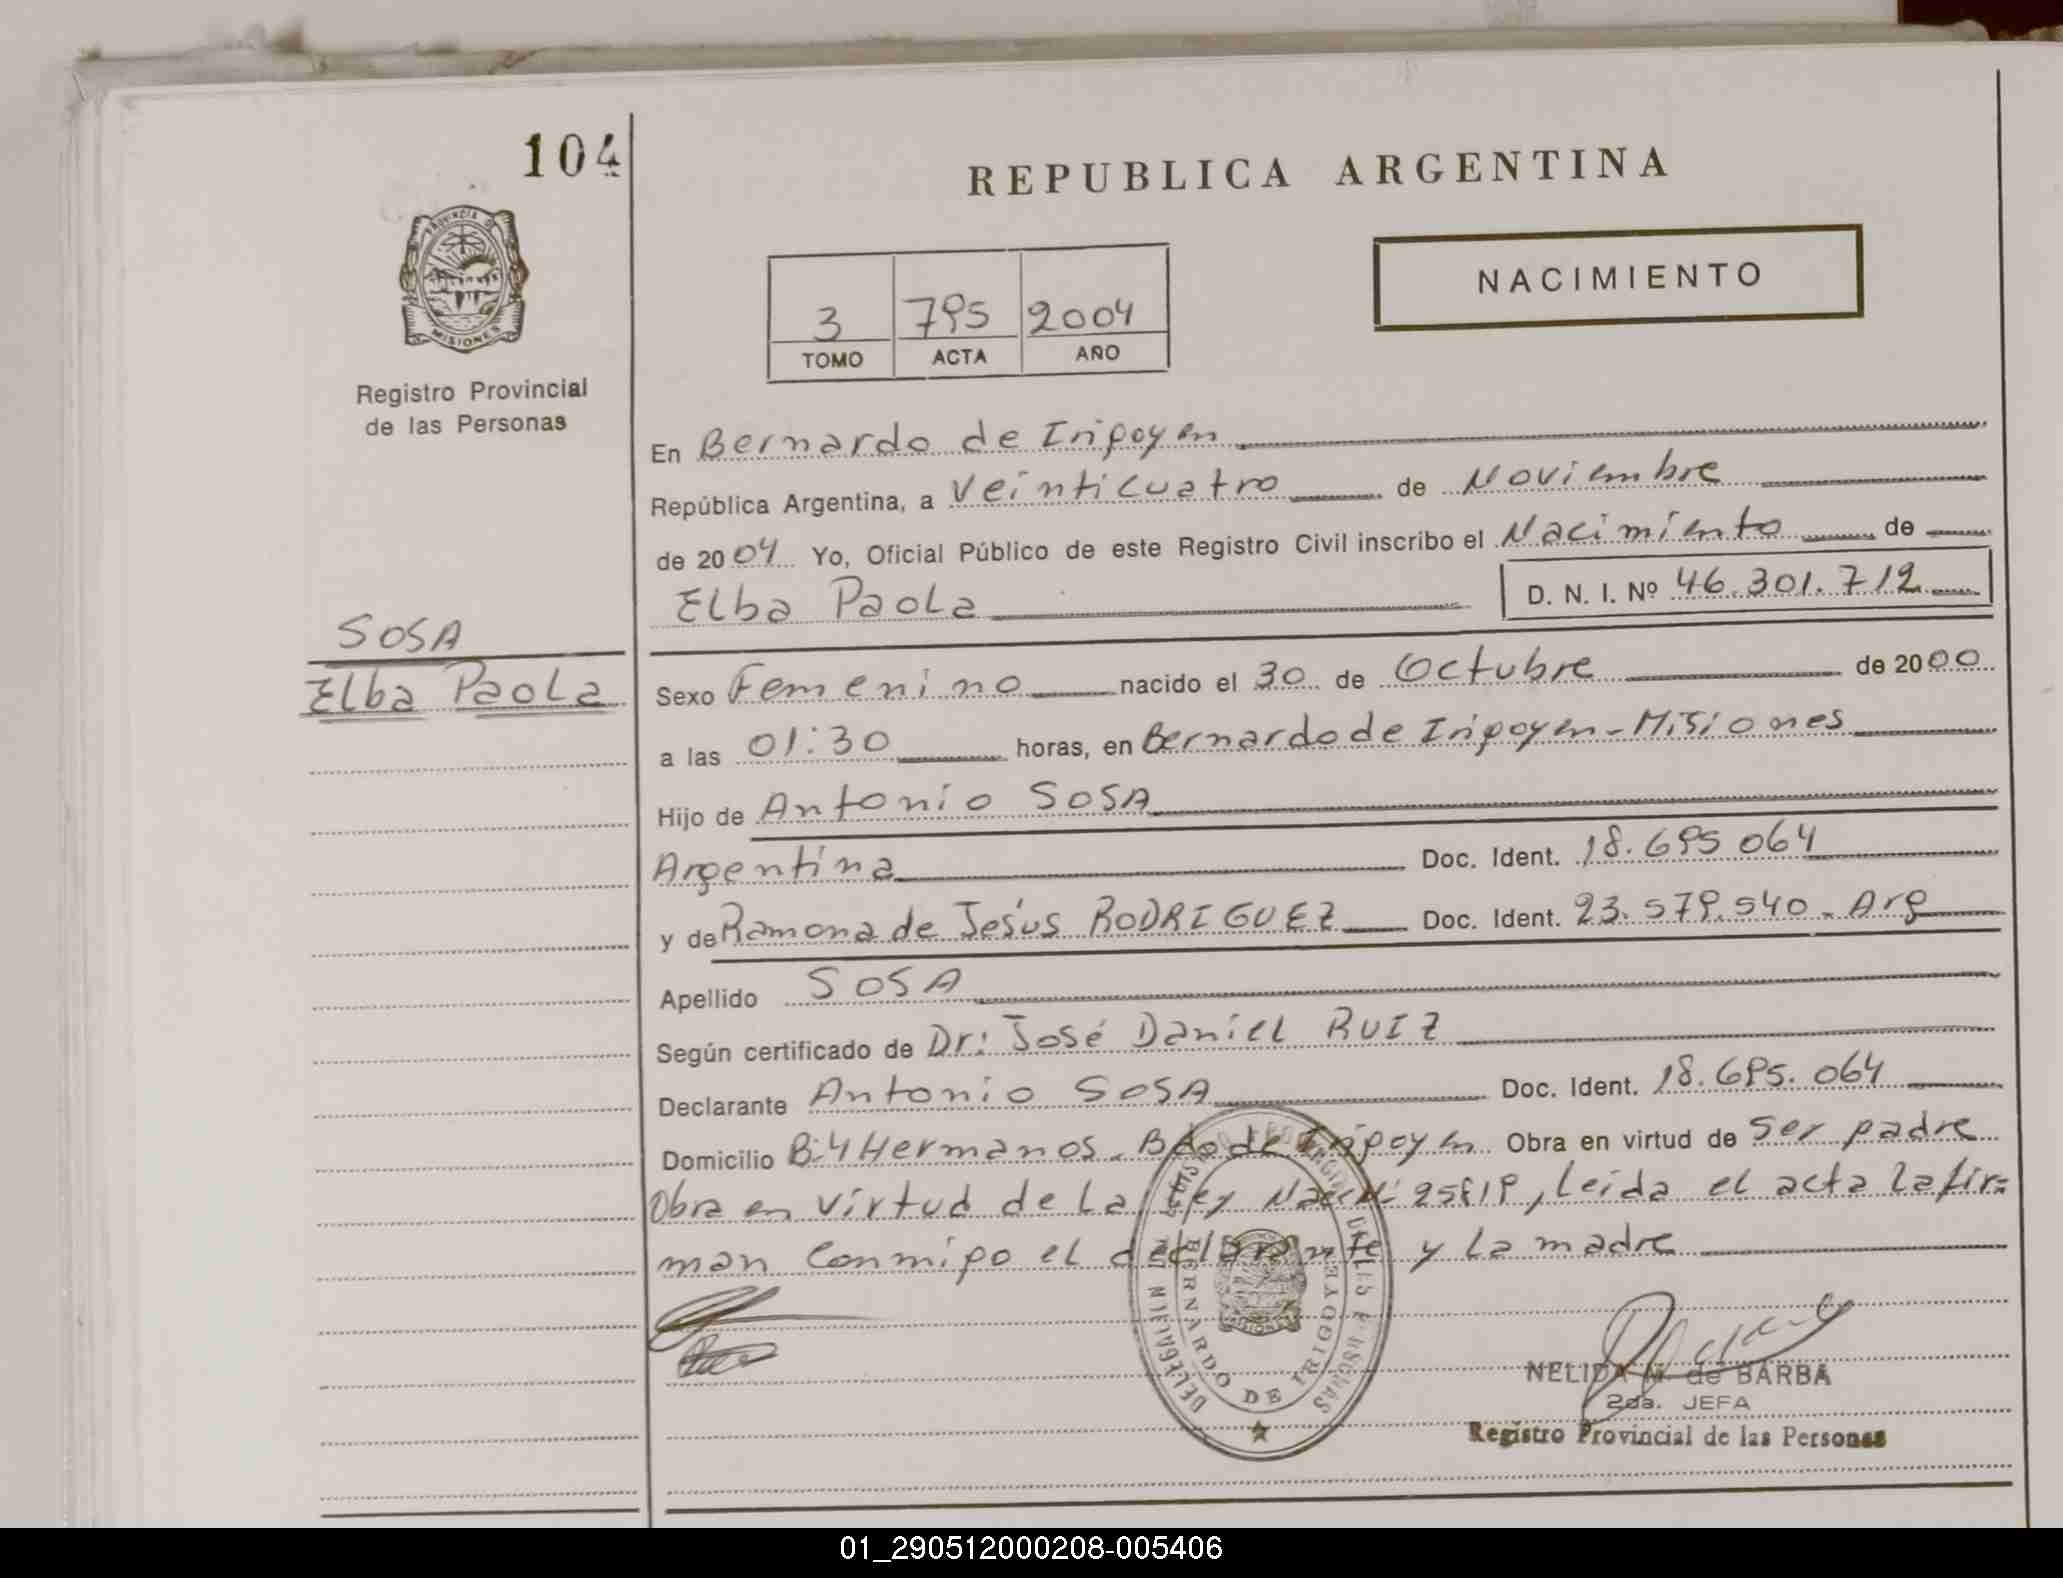 104
REPUBLICA ARGENTINA
PROVINCIA DE
MISIONES
NACIMIENTO
3 795 2004
TOMO ACTA AÑO
Registro Provincial
de las Personas
En Bernardo de Irigoyen
República Argentina, a Veinticuatro de Noviembre
de 2004 Yo, Oficial Público de este Registro Civil inscribo el Nacimiento de
Elba Paola D. N. I. Nº 46.301.712
SOSA
Elba Paola
Sexo Femenino nacido el 30 de Octubre de 2000
a las 01:30 horas, en Bernardo de Irigoyen-Misiones
Hijo de Antonio SOSA
Argentina Doc. Ident. 18.695 064
y de Ramona de Jesús RODRIGUEZ Doc. Ident. 23.579.540. Arg
Apellido SOSA
Según certificado de Dr: José Daniel RUIZ
Declarante Antonio SOSA Doc. Ident. 18.695.064
Domicilio B:4 Hermanos. Bdo de Irigoyen Obra en virtud de Ser padre
Obra en virtud de La Ley Nac N: 25819, Leida el acta La fir=
man conmigo el declarante y La madre
BERNARDO DE IRIGOYEN
NELIDA M. de BARBA
2da. JEFA
Registro Provincial de las Personas
01_290512000208-005406